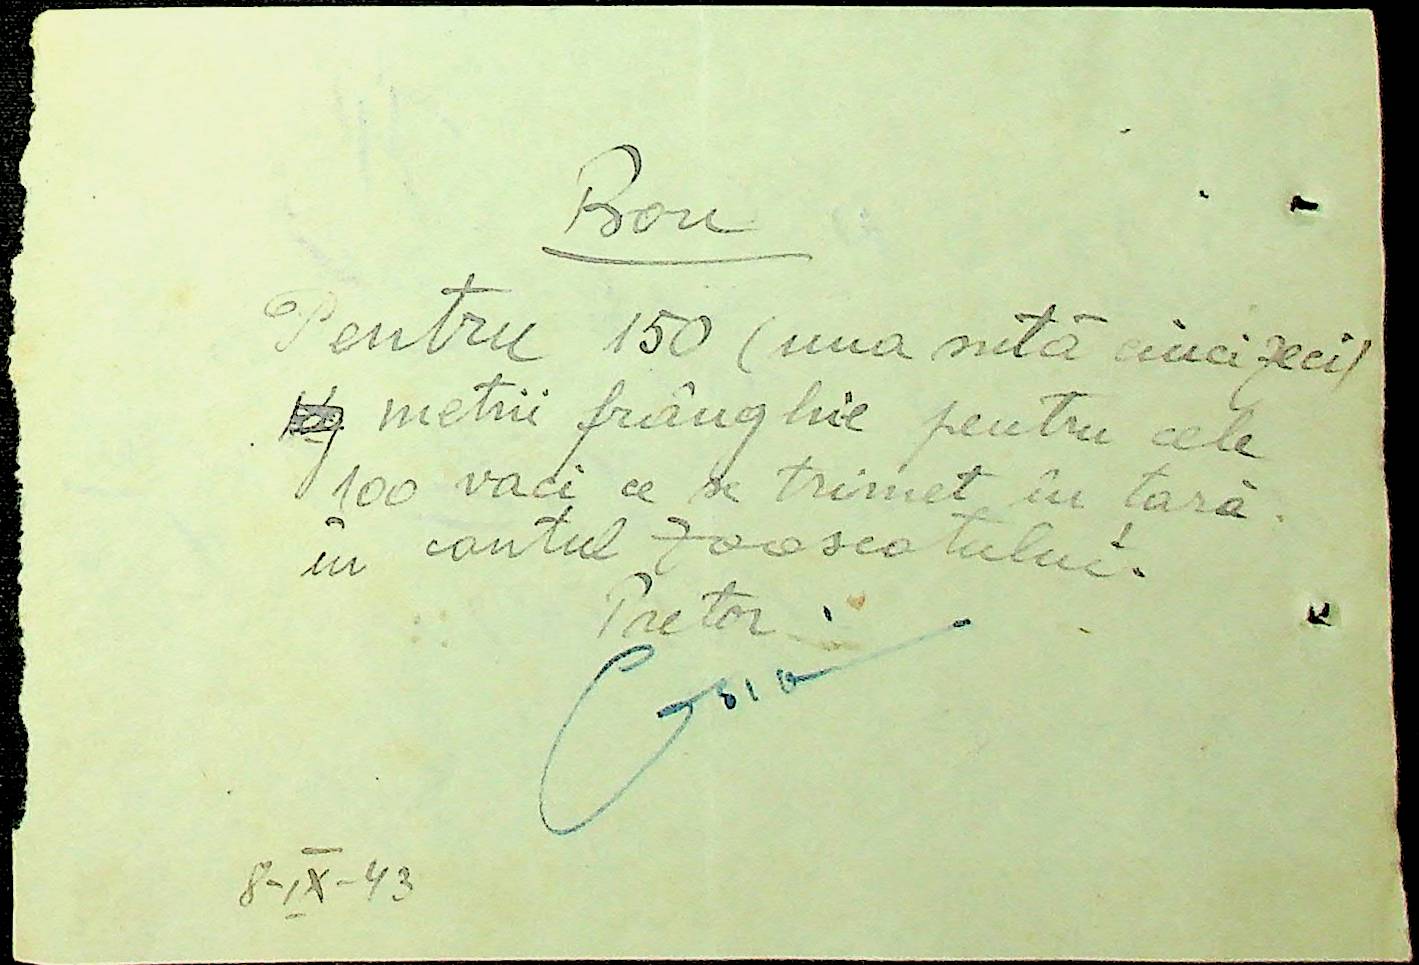 Bon
Pentru 150 (una sută cinci zeci)
metrii frânghie pentru cele
100 vaci ce se trimet în tară
în contul Zooscotului.
Pretor
8-IX-43